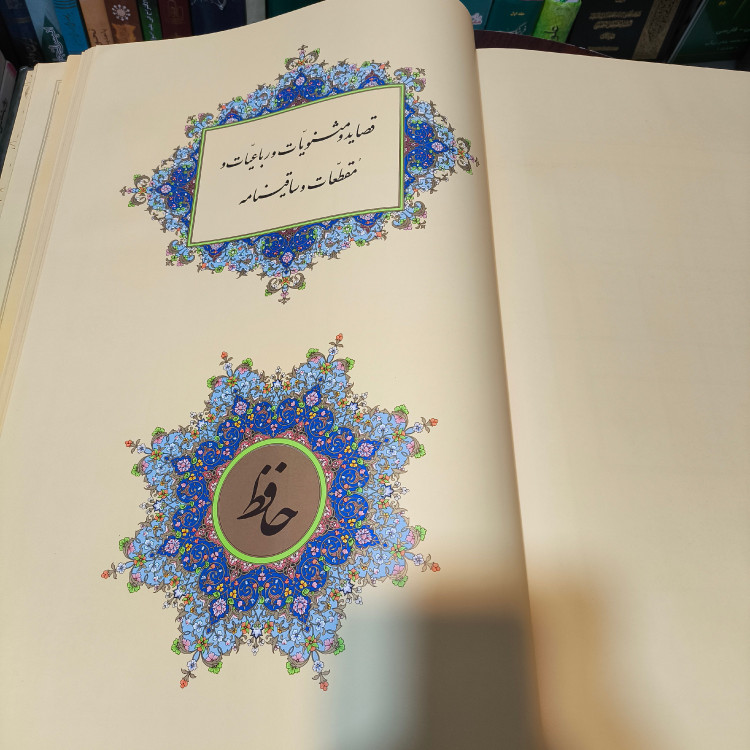 قصاید و مثنویّات و رباعیّات و
مُقطّعات و ساقینامه
حافظ